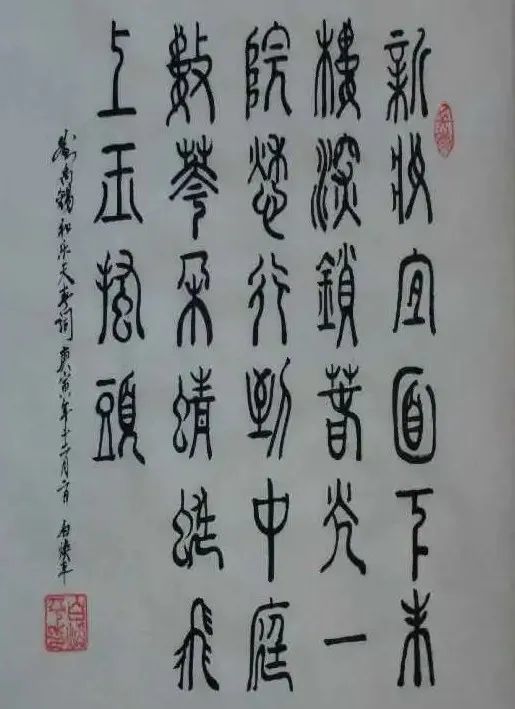 新妝宜面下朱
樓深鎖春光一
院愁行到中庭
數花朵蜻蜓飛
上玉搔頭
劉禹錫和乐天春词庚寅年十二月